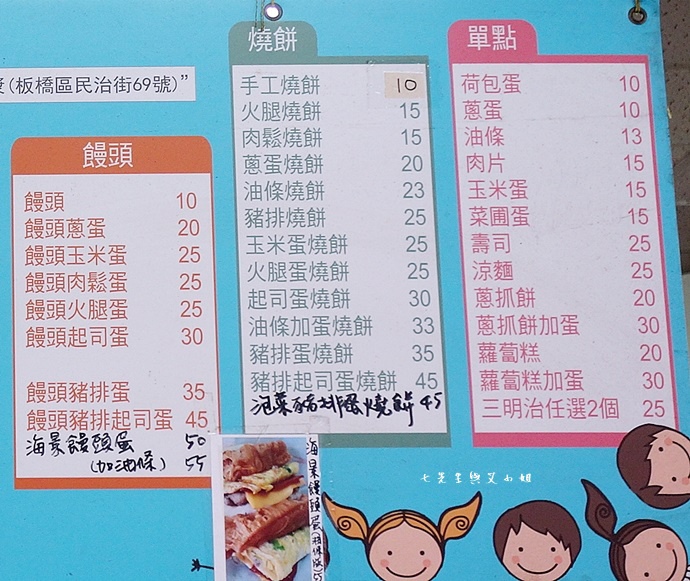 (板橋區民治街69號)”
饅頭
饅頭 10
饅頭蔥蛋 20
饅頭玉米蛋 25
饅頭肉鬆蛋 25
饅頭火腿蛋 25
饅頭起司蛋 30
饅頭豬排蛋 35
饅頭豬排起司蛋 45
海景饅頭蛋 50
(加油條) 55
燒餅
手工燒餅 10
火腿燒餅 15
肉鬆燒餅 15
蔥蛋燒餅 20
油條燒餅 23
豬排燒餅 25
玉米蛋燒餅 25
火腿蛋燒餅 25
起司蛋燒餅 30
油條加蛋燒餅 33
豬排蛋燒餅 35
豬排起司蛋燒餅 45
泡菜豬排蛋燒餅 45
單點
荷包蛋 10
蔥蛋 10
油條 13
肉片 15
玉米蛋 15
菜圃蛋 15
壽司 25
涼麵 25
蔥抓餅 20
蔥抓餅加蛋 30
蘿蔔糕 20
蘿蔔糕加蛋 30
三明治任選2個 25
海景饅頭蛋
七先生與艾小姐